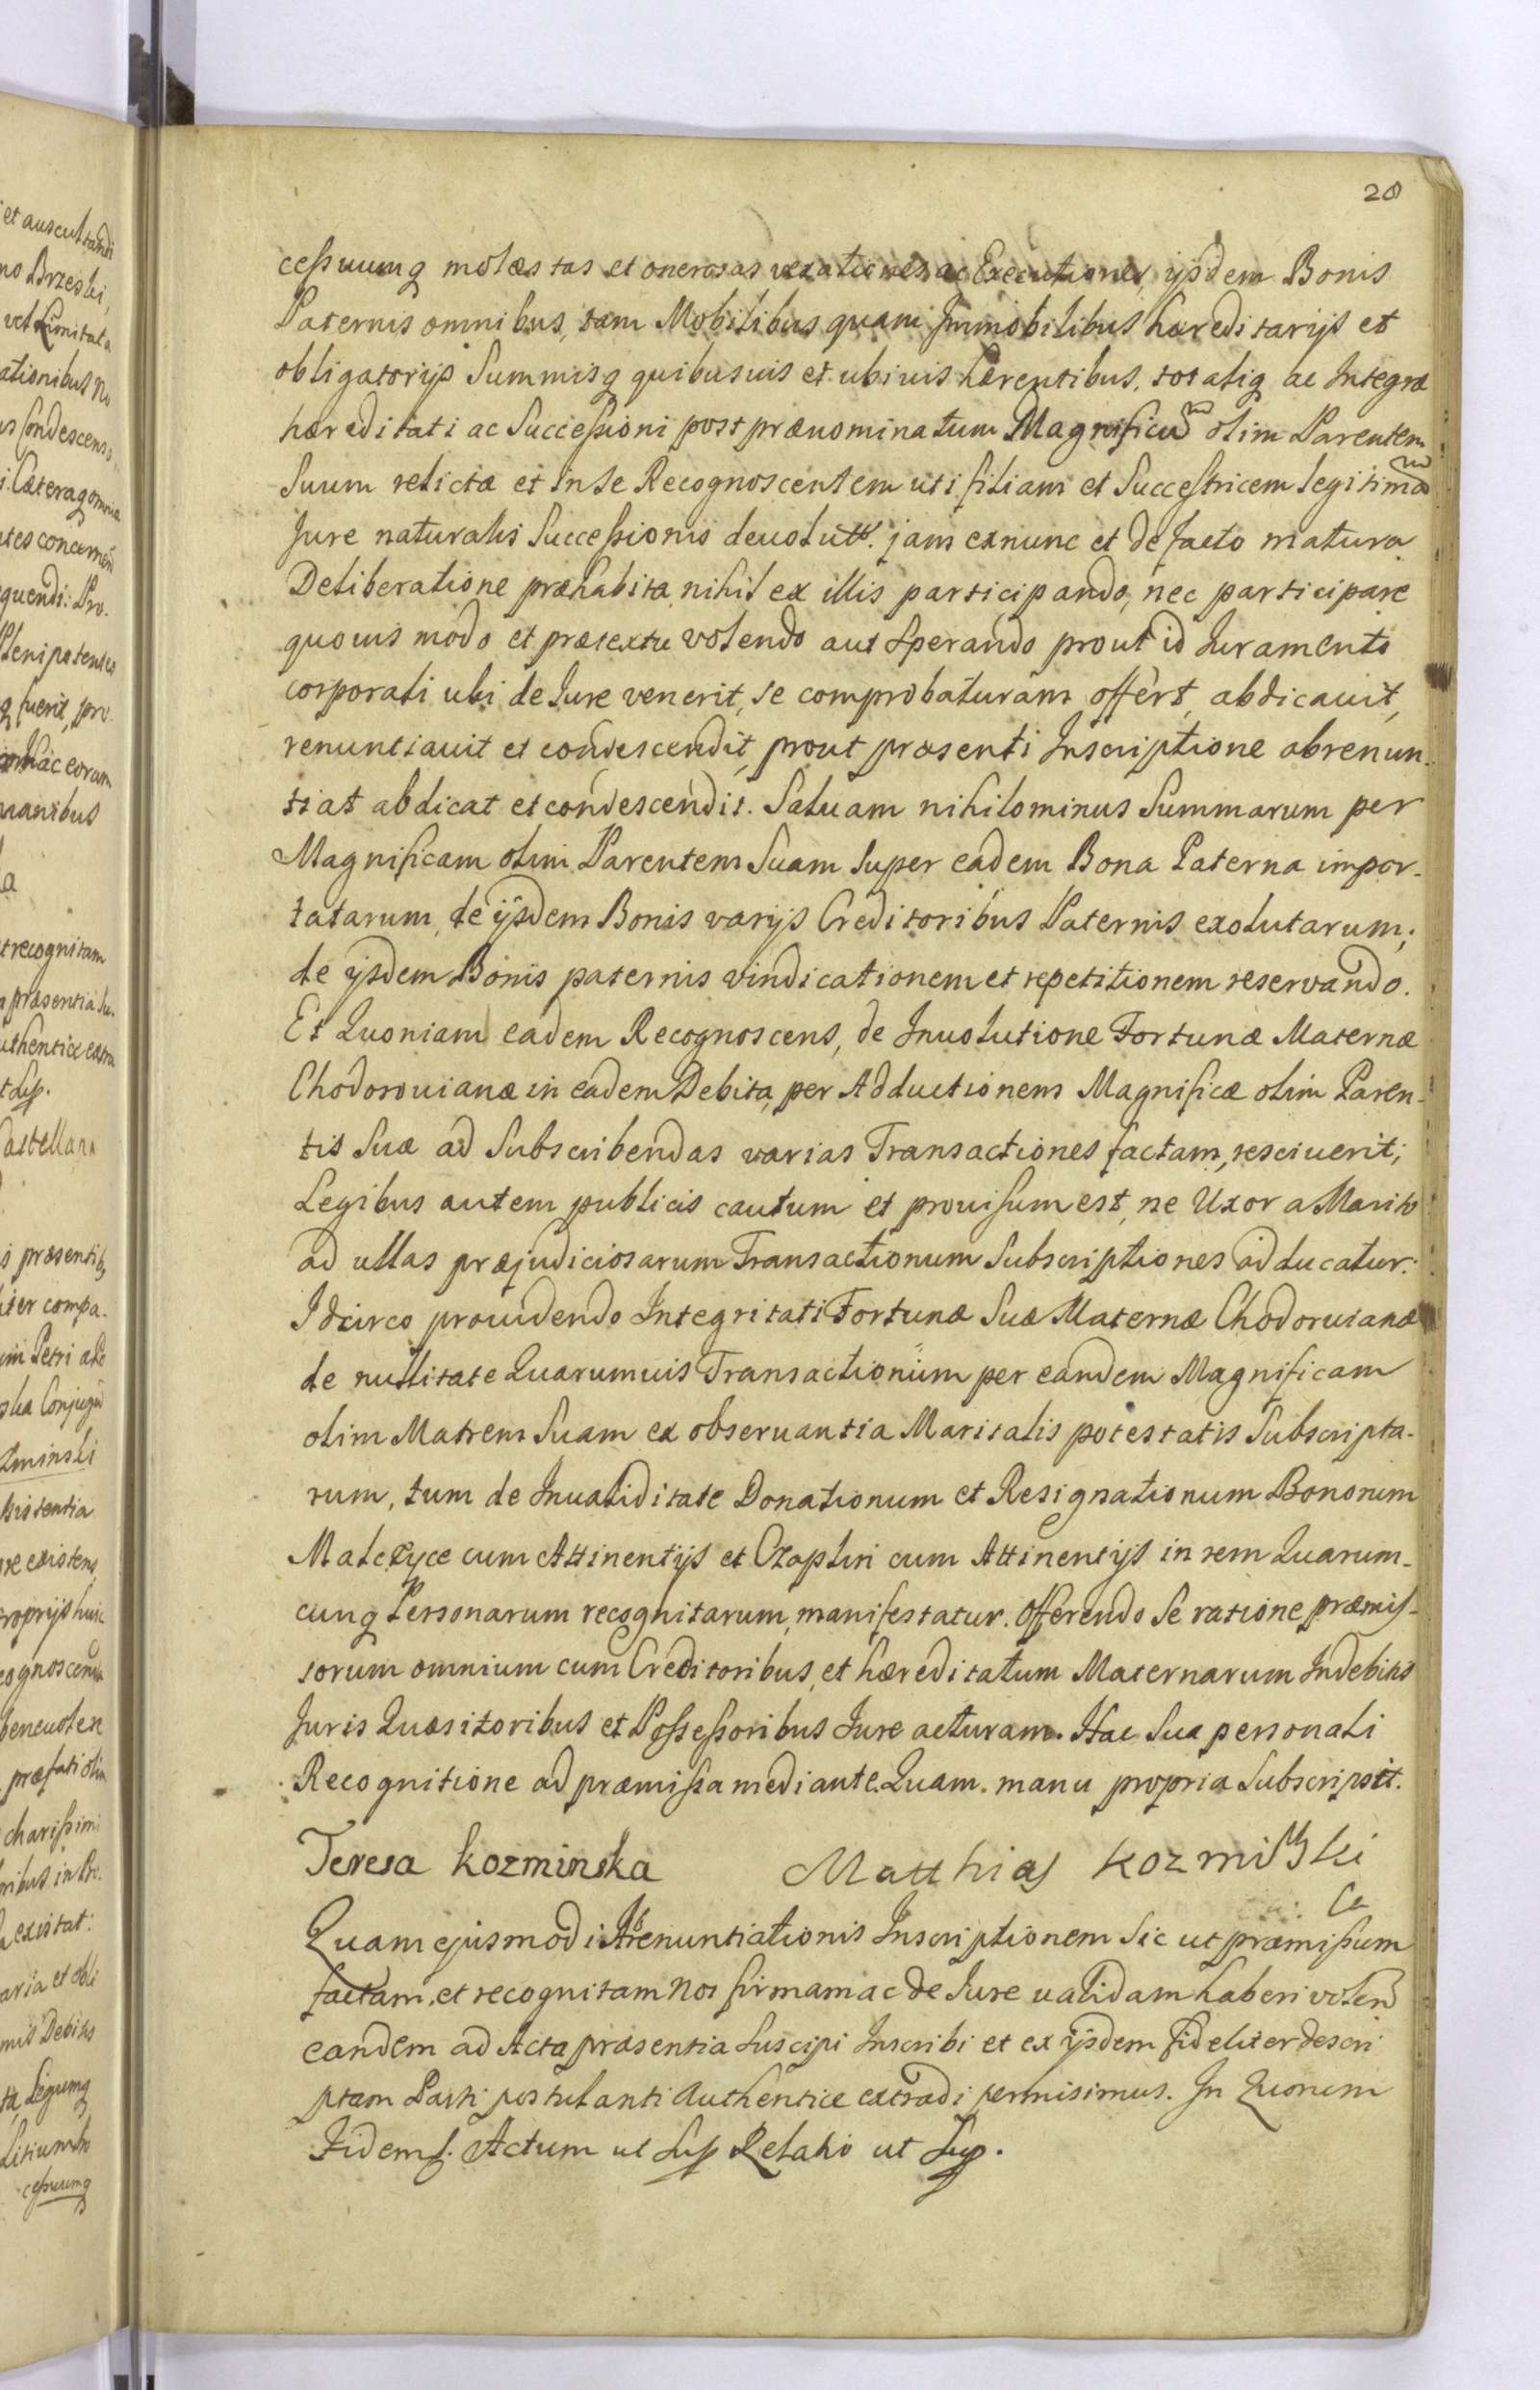 20
cessuumq molæstas et onerosas vexationes ac Executiones, ijsdem Bonis
Paternis omnibus, tam Mobilibus quam Immobilibus hæreditarijs et
obligatorijs Summisq quibusuis et ubiuis hærentibus, totaliq ac Integræ
hæreditati ac Successioni post prænominatum Magnificum olim Parentem
Suum relictæ et in se Recognoscentem uti filiam et Successtricem legitimam
Jure naturalis Successionis deuolutæ. jam exnunc et defacto matura
Deliberatione præhabita nihil ex illis participando, nec participare
quouis modo et prætextu volendo aut Sperando prout id Juramento
corporali ubi de Jure venerit, se comprobaturam offert, abdicauit,
renuntiauit et condescendit, prout præsenti Inscriptione abrenun-
tiat abdicat et condescendit. Saluam nihilominus Summarum per
Magnificam olim Parentem Suam super eadem Bona Paterna impor-
tatarum, de ijsdem Bonis varijs Creditoribus Paternis exolutarum;
de ijsdem Bonis paternis vindicationem et repetitionem reservando.
Et Quoniam eadem Recognoscens, de Inuolutione Fortunæ Maternæ
Chodorouianæ in eadem Debita, per Adductionem Magnificæ olim Paren-
tis Suæ ad Subscribendas varias Transactiones factam, resciuerit;
Legibus autem publicis cautum et prouisum est, ne Uxor a Marito
ad ullas præjudiciosarum Transactionum Subscriptiones adducatur:
Idcirco prouidendo Integritati Fortunæ Suæ Maternæ Chodoruianæ
de nullitate Quarumuis Transactionum per eandem Magnificam
olim Matrem Suam ex obseruantia Maritalis potestatis Subscripta-
rum, tum de Inualiditate Donationum et Resignationum Bonorum
Malczyce cum Attinentijs et Czaplin cum Attinentijs in rem Quarum-
cunq Personarum recognitarum, manifestatur. Offerendo Se ratione præmis-
sorum omnium cum Creditoribus, et hæreditatum Maternarum Indebitis
Juris Quæsitoribus et Possessoribus Jure acturam. Hac Sua personali
Recognitione ad præmissa mediante. Quam. manu propria Subscripsit.
Teresa Kozminska Matthias Kozmiński
Quam ejusmodi Abrenuntiationis Inscriptionem Sic ut præmissum
factam, et recognitam Nos firmam ac de Jure ualidam haberi volen
eandem ad Acta præsentia Suscipi Inscribi et ex ijsdem fideliter descri
ptam Parti postulanti Authentice extradi permisimus. In Quorum
Fidem. Actum ut Sup Relatio ut Sup.